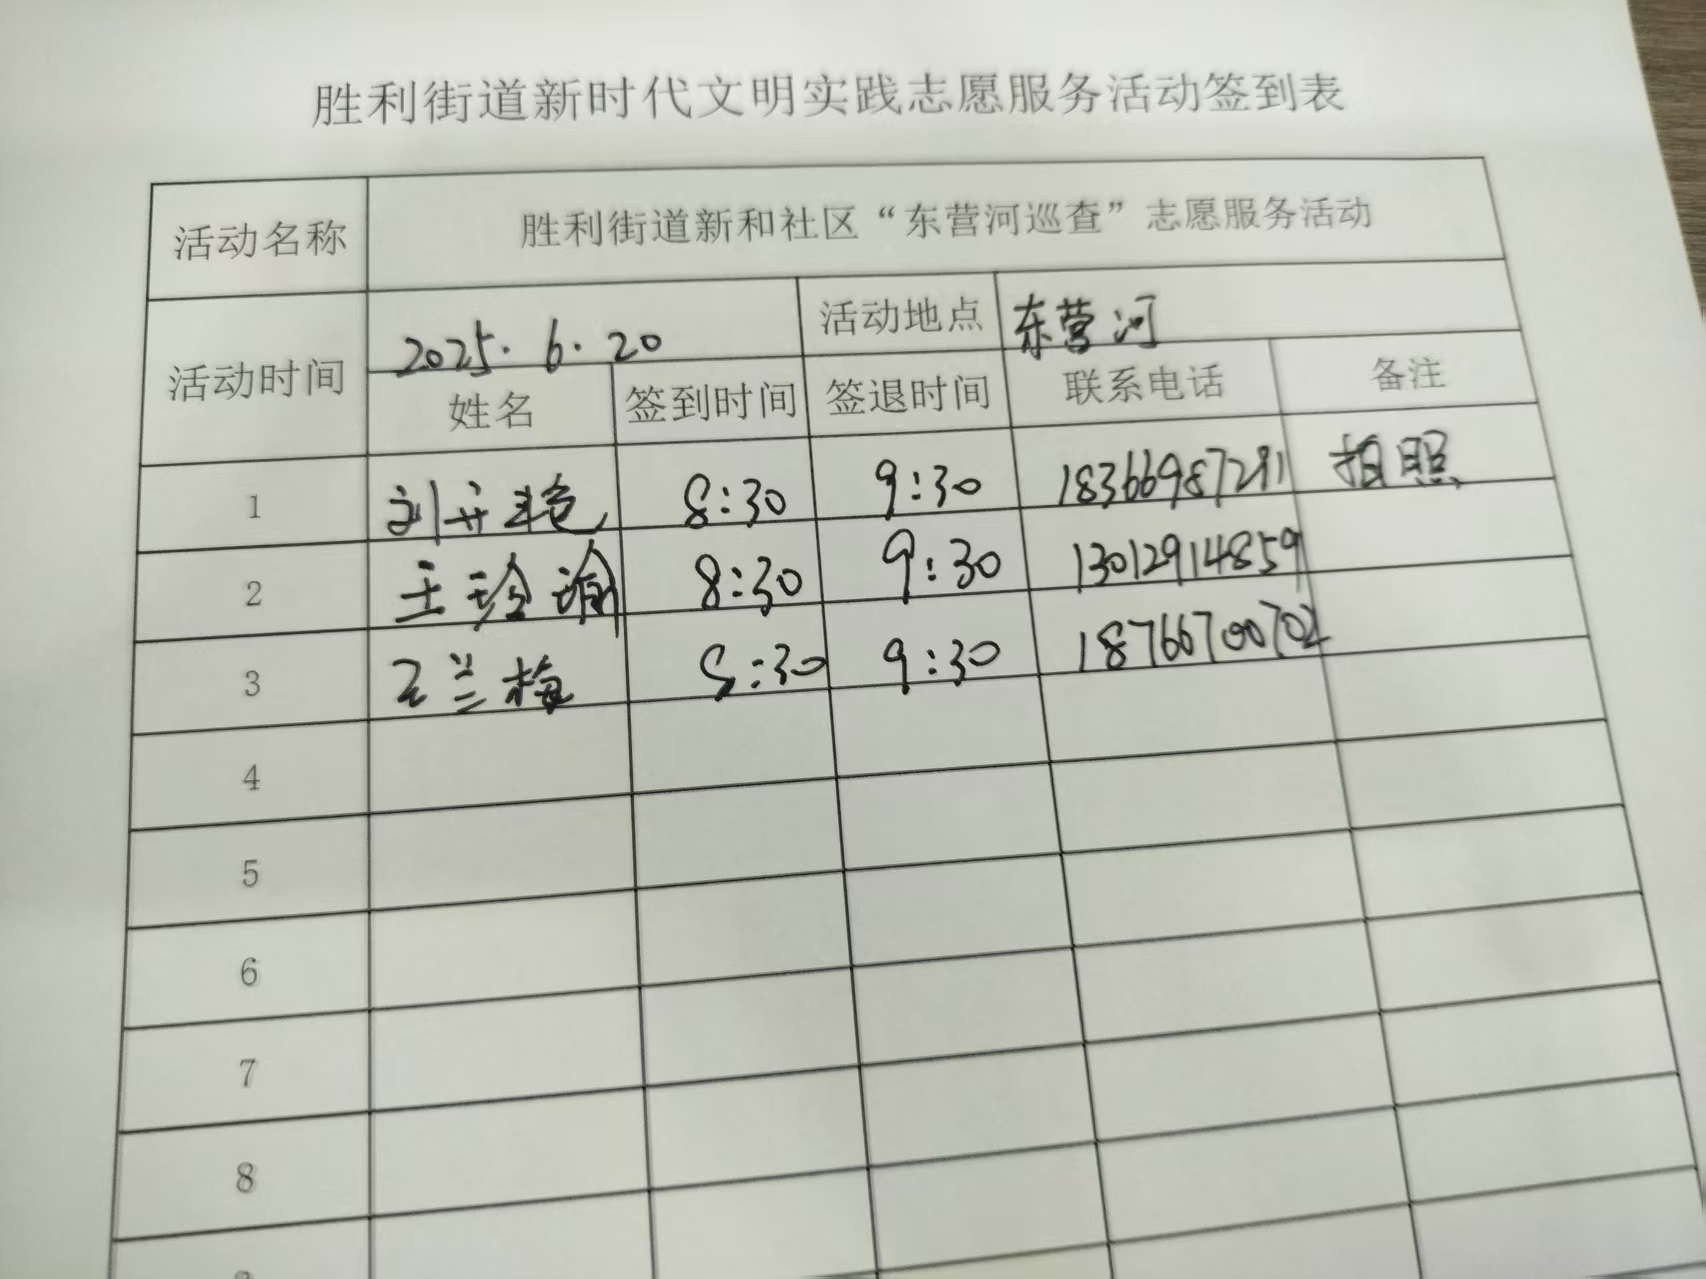 胜利街道新时代文明实践志愿服务活动签到表
活动名称 胜利街道新和社区“东营河巡查”志愿服务活动
活动时间 2025.6.20 活动地点 东营河
姓名 签到时间 签退时间 联系电话 备注
1 刘开艳 8:30 9:30 18366987291 拍照
2 王玲瑜 8:30 9:30 13012914859
3 王兰梅 8:30 9:30 18766700702
4
5
6
7
8